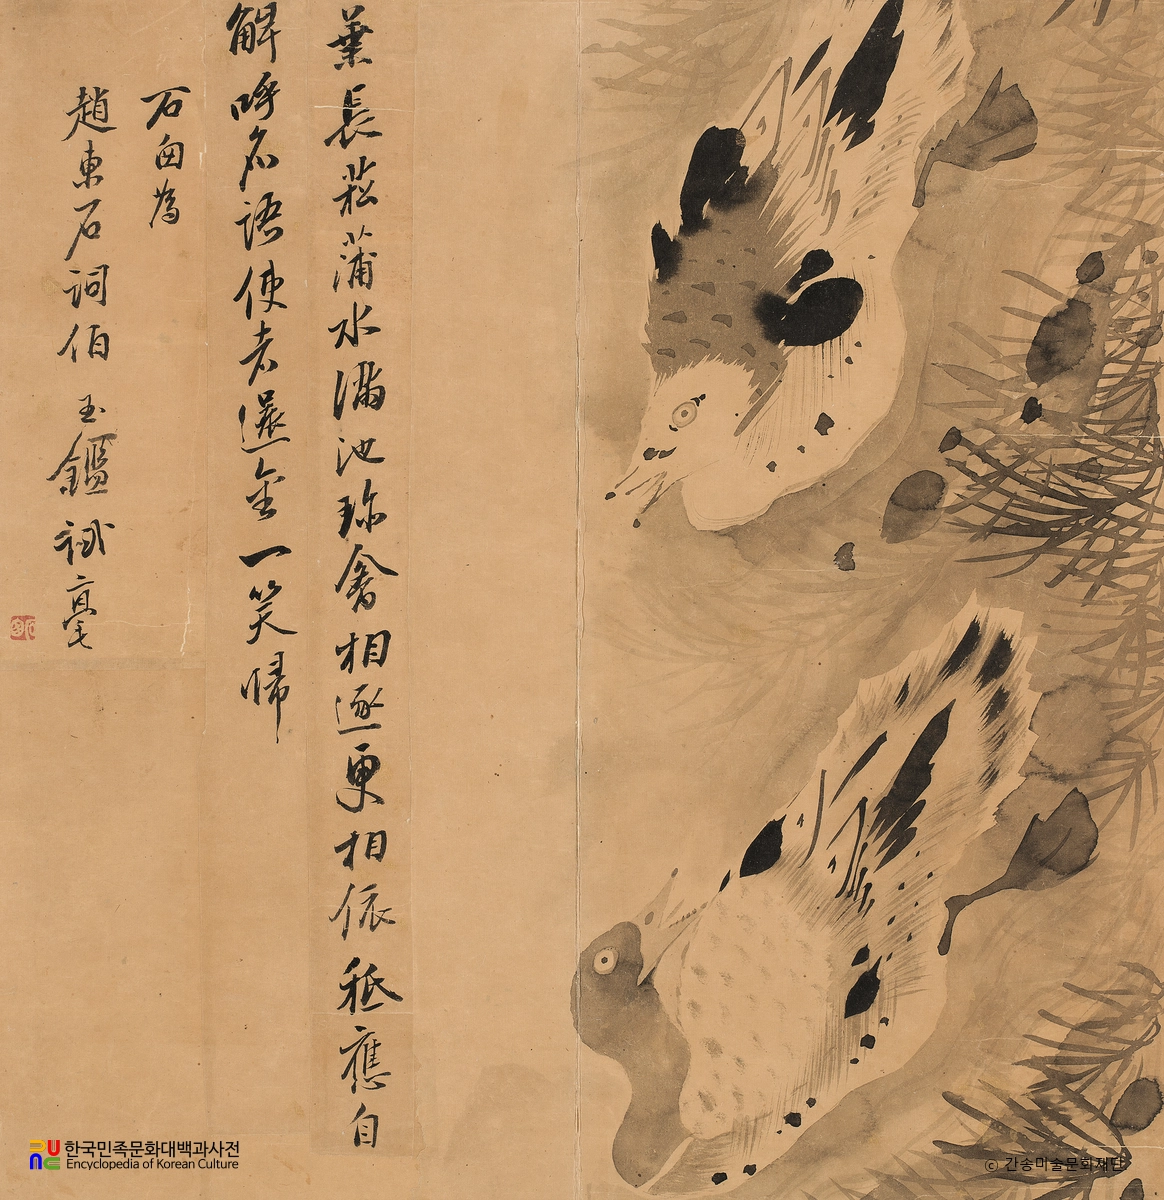 葉長菰蒲水滿池珍禽相逐更相依秪應自
解呼名語使者還金一笑歸
石由為
趙東石詞伯玉鑑試毫
한국민족문화대백과사전
Encyclopedia of Korean Culture
ⓒ 간송미술문화재단